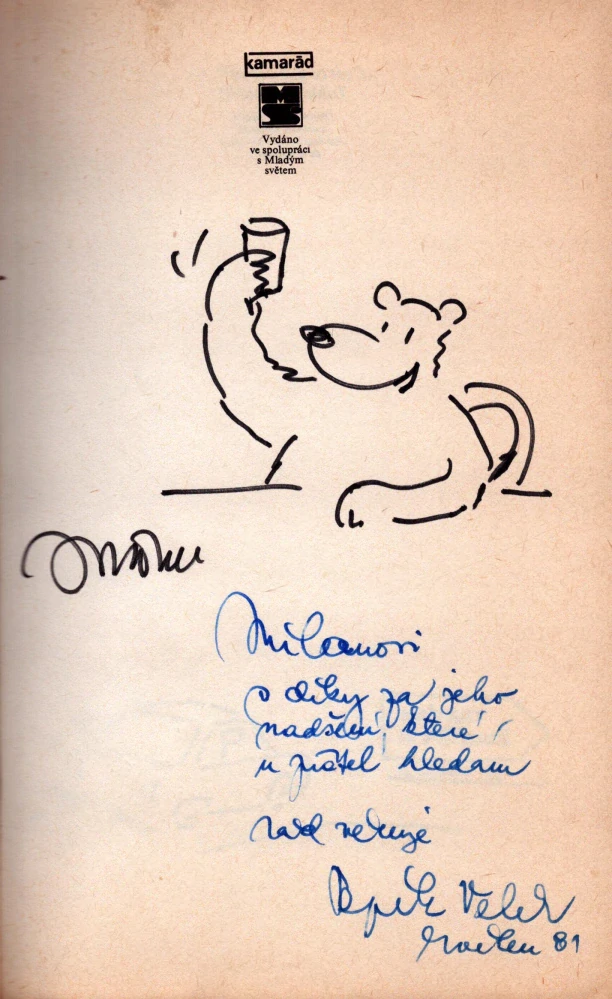 kamarád
MS
Vydáno
ve spolupráci
s Mladým
světem
Milanovi
s díky za jeho
nadšení, které
u přátel hledam
rád
81